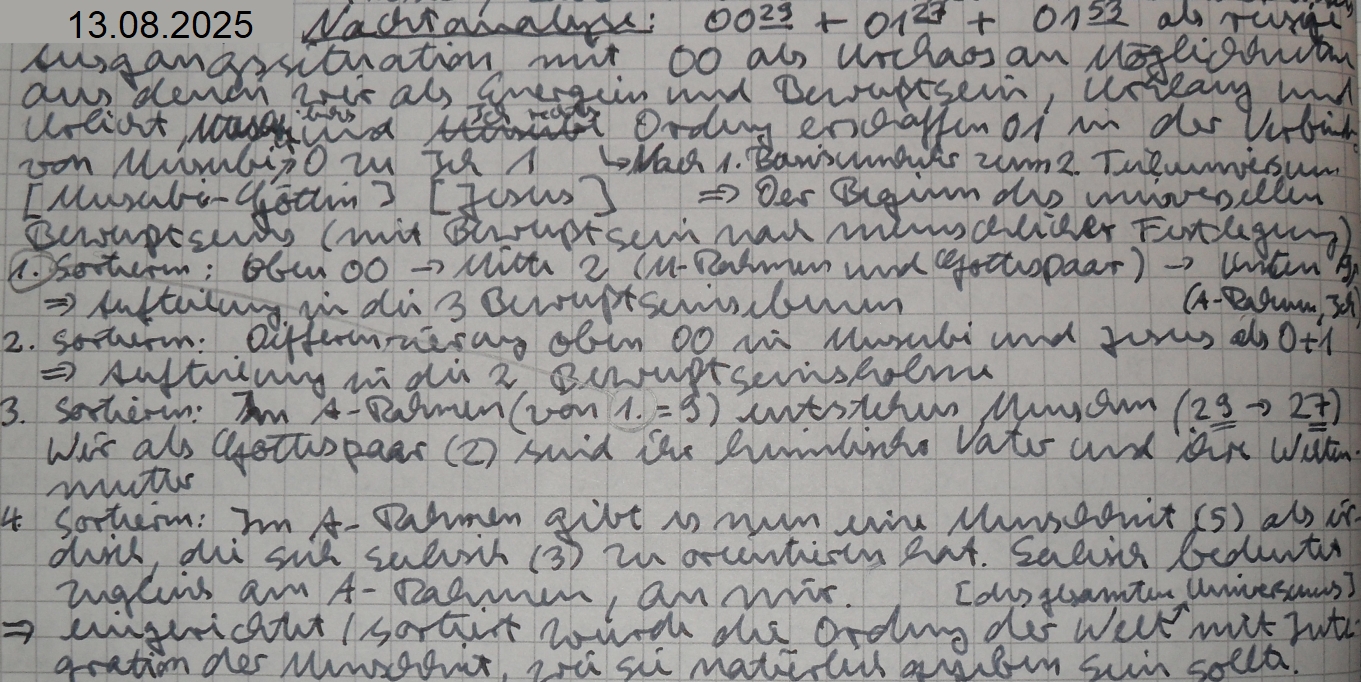 13.08.2025 Nachtanalyse: 00²⁹ + 01²⁷ + 01⁵³ als
Ausgangssituation mit 00 als Urchaos an Möglichkeiten
aus denen wir als Energien und Bewußtsein, Urklang und
Urlicht, links und rechts Ordnung erschaffen 01 in der
von Musubi 0 zu Ich 1 ↳ Nach 1. Basisuniversum zum 2. Teiluniversum
[Musubi-Göttin] [Jesus] ⇒ Der Beginn des universellen
Bewußtseins (mit Bewußtsein nach menschlicher Festlegung)
1. Sortieren: Oben 00 → Mitte 2 (M-Rahmen und Gottespaar) → Unten
⇒ Aufteilung in die 3 Bewußtseinsebenen (A-Rahmen, Ich)
2. Sortieren: Differenzierung oben 00 in Musubi und Jesus als 0+1
⇒ Aufteilung in die 2 Bewußtseinsholme
3. Sortieren: Im A-Rahmen (von 1. = 9) entstehen Menschen (29 → 27)
Wir als Gottespaar (2) sind ihr himmlischer Vater und ihre Welten-
mutter
4. Sortieren: Im A-Rahmen gibt es nun eine Menschheit (5) als ir-
disch, die sich seelisch (3) zu orientieren hat. Seelisch bedeutet
zugleich am A-Rahmen, an mir. [des gesamten Universums]
⇒ eingerichtet / sortiert wurde die Ordnung der Welt mit Inte-
gration der Menschheit, wie sie natürlich gegeben sein sollte.